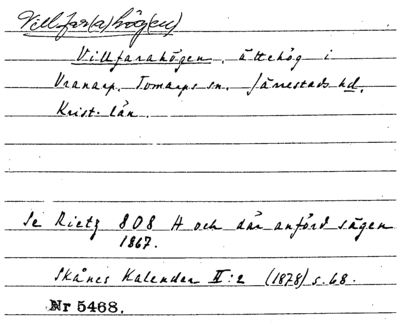 Villfar(a)hög(en)
Villfarahögen, ättehög i
Vranarp, Tomarps sn. Järrestads hd,
Krist. län.
Se Rietz 808 H och där anförd sägen
1867.
Skånes Kalender II:2 (1878) s. 68.
Nr 5468.